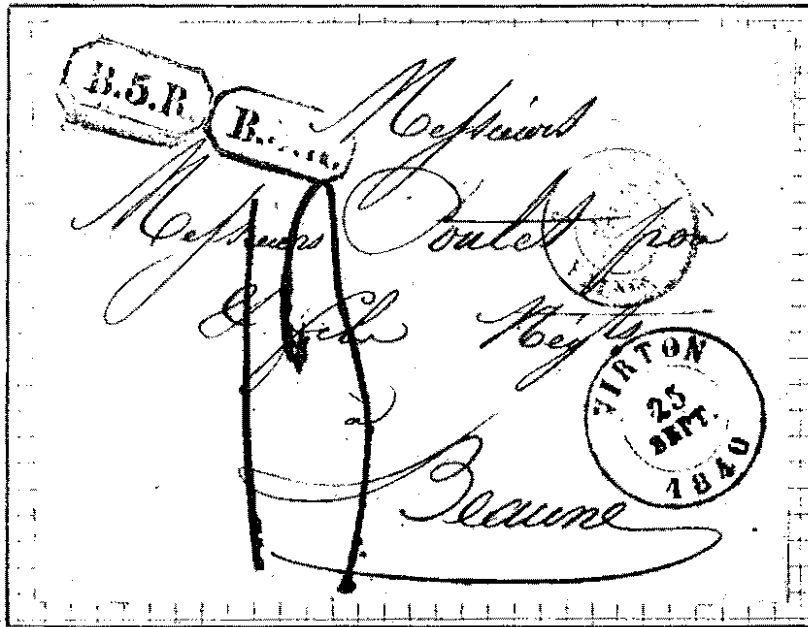 B.5.R.
B.
Messieurs
Messieurs Poulet père
& fils Négts
à
Beaune
VIRTON
25
SEPT.
1840